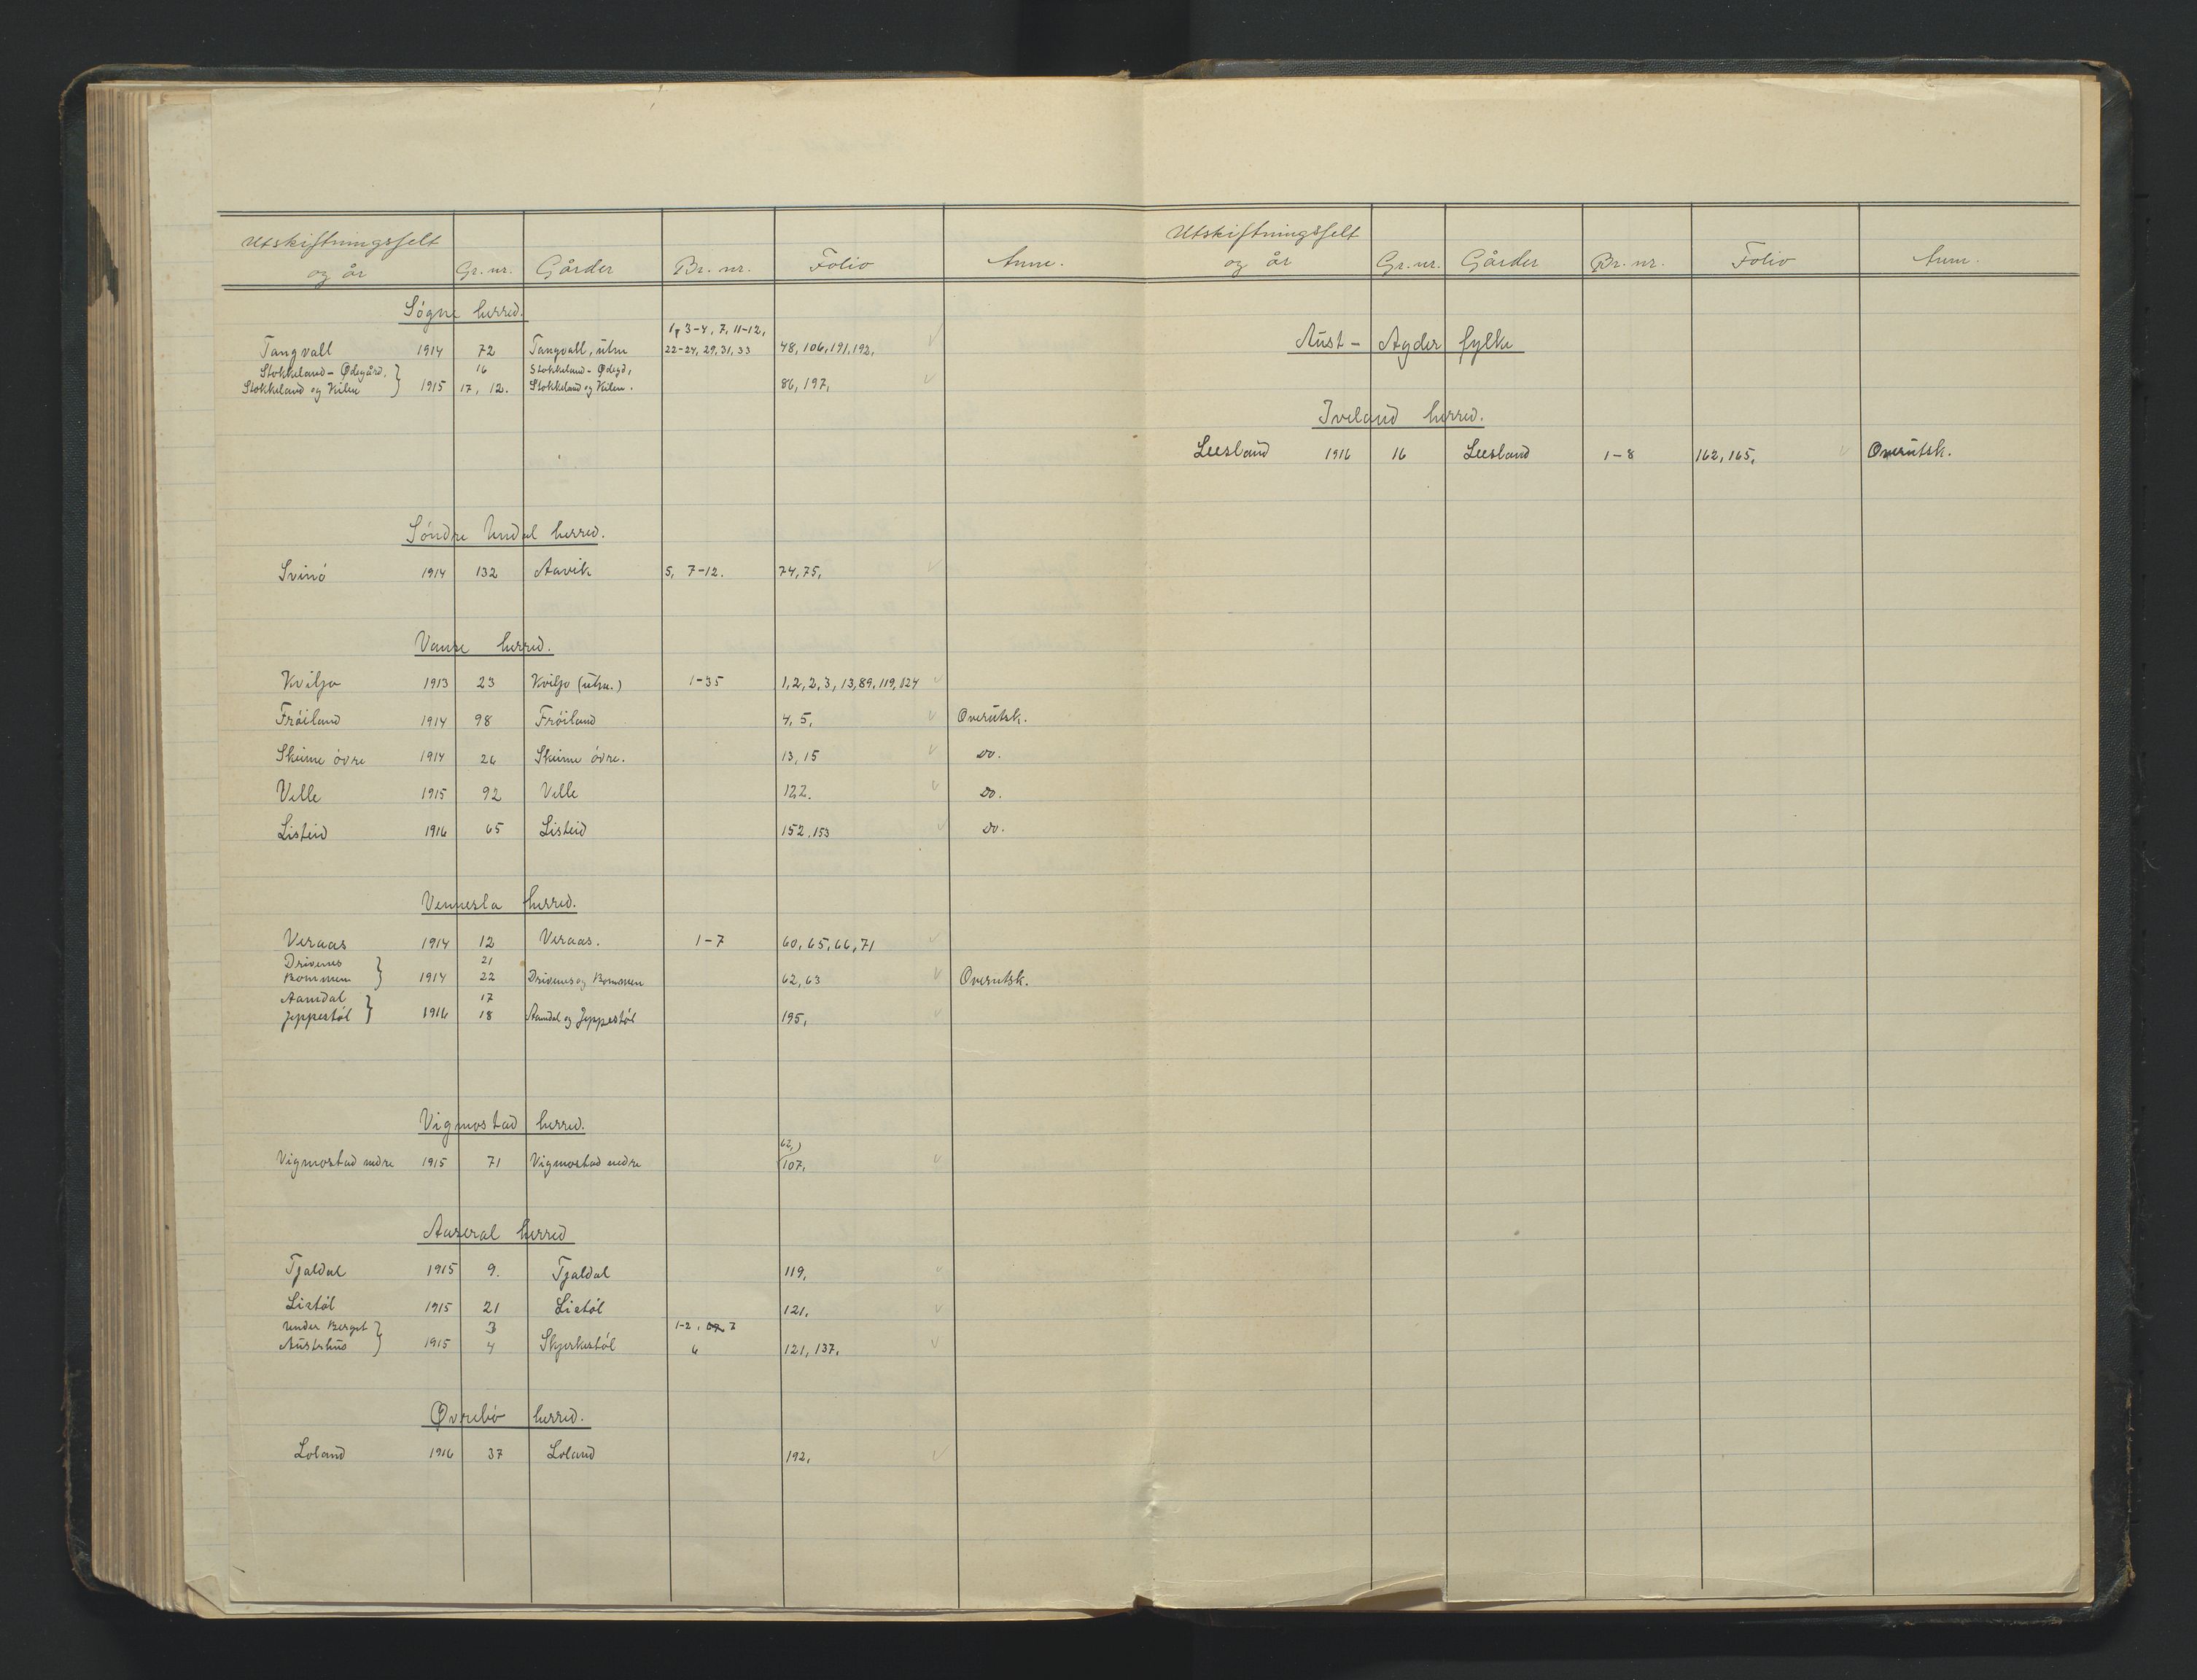 Utskiftningsfelt
og år Gr. nr. Gårder Br. nr. Folio Anm.
Sógne herred.
1, 3-4, 7, 11-12,
Tangvall 1914 72 Tangvall, utm 22-24, 29, 31, 33 48, 106, 191, 192,
Stokkeland - Ødegård, 16 Stokkeland - Ødegd,
Stokkeland og Kilen } 1915 17, 12. Stokkeland og Kilen. 86, 197,
Søndre Undal herred.
Svinó 1914 132 Aavik 5, 7-12. 74, 75,
Vanse herred.
Kviljo 1913 23 Kviljo (utm.) 1-35 1, 2, 2, 3, 13, 89, 119, 124
Fróiland 1914 98 Fróiland 4, 5, Overutsk.
Skeime óvre 1914 26 Skeime óvre. 13, 15 Do.
Velle 1915 92 Velle 122. Do.
Listeid 1916 65 Listeid 152, 153 Do.
Vennesla herred.
Veraas 1914 12 Veraas. 1-7 60, 65, 66, 71
Drivenes 21
Bommen } 1914 22 Drivenes og Bommen 62, 63 Overutsk.
Aamdal 17
Jeppestól } 1916 18 Aamdal og Jeppestól 195,
Vigmostad herred.
62,
Vigmostad nedre 1915 71 Vigmostad nedre 107,
Aaseral herred
Tjaldal 1915 9. Tjaldal 119,
Listól 1915 21 Listól 121,
Under Berget 3 1-2, 7
Austhus } 1915 4 Skjerkestól 6 121, 137,
Øvrebó herred.
Loland 1916 37 Loland 192,
Utskiftningsfelt
og år Gr. nr. Gårder Br. nr. Folio Anm.
Aust-Agder fylke
Iveland herred.
Leesland 1916 16 Leesland 1-8 162, 165, Overutsk.